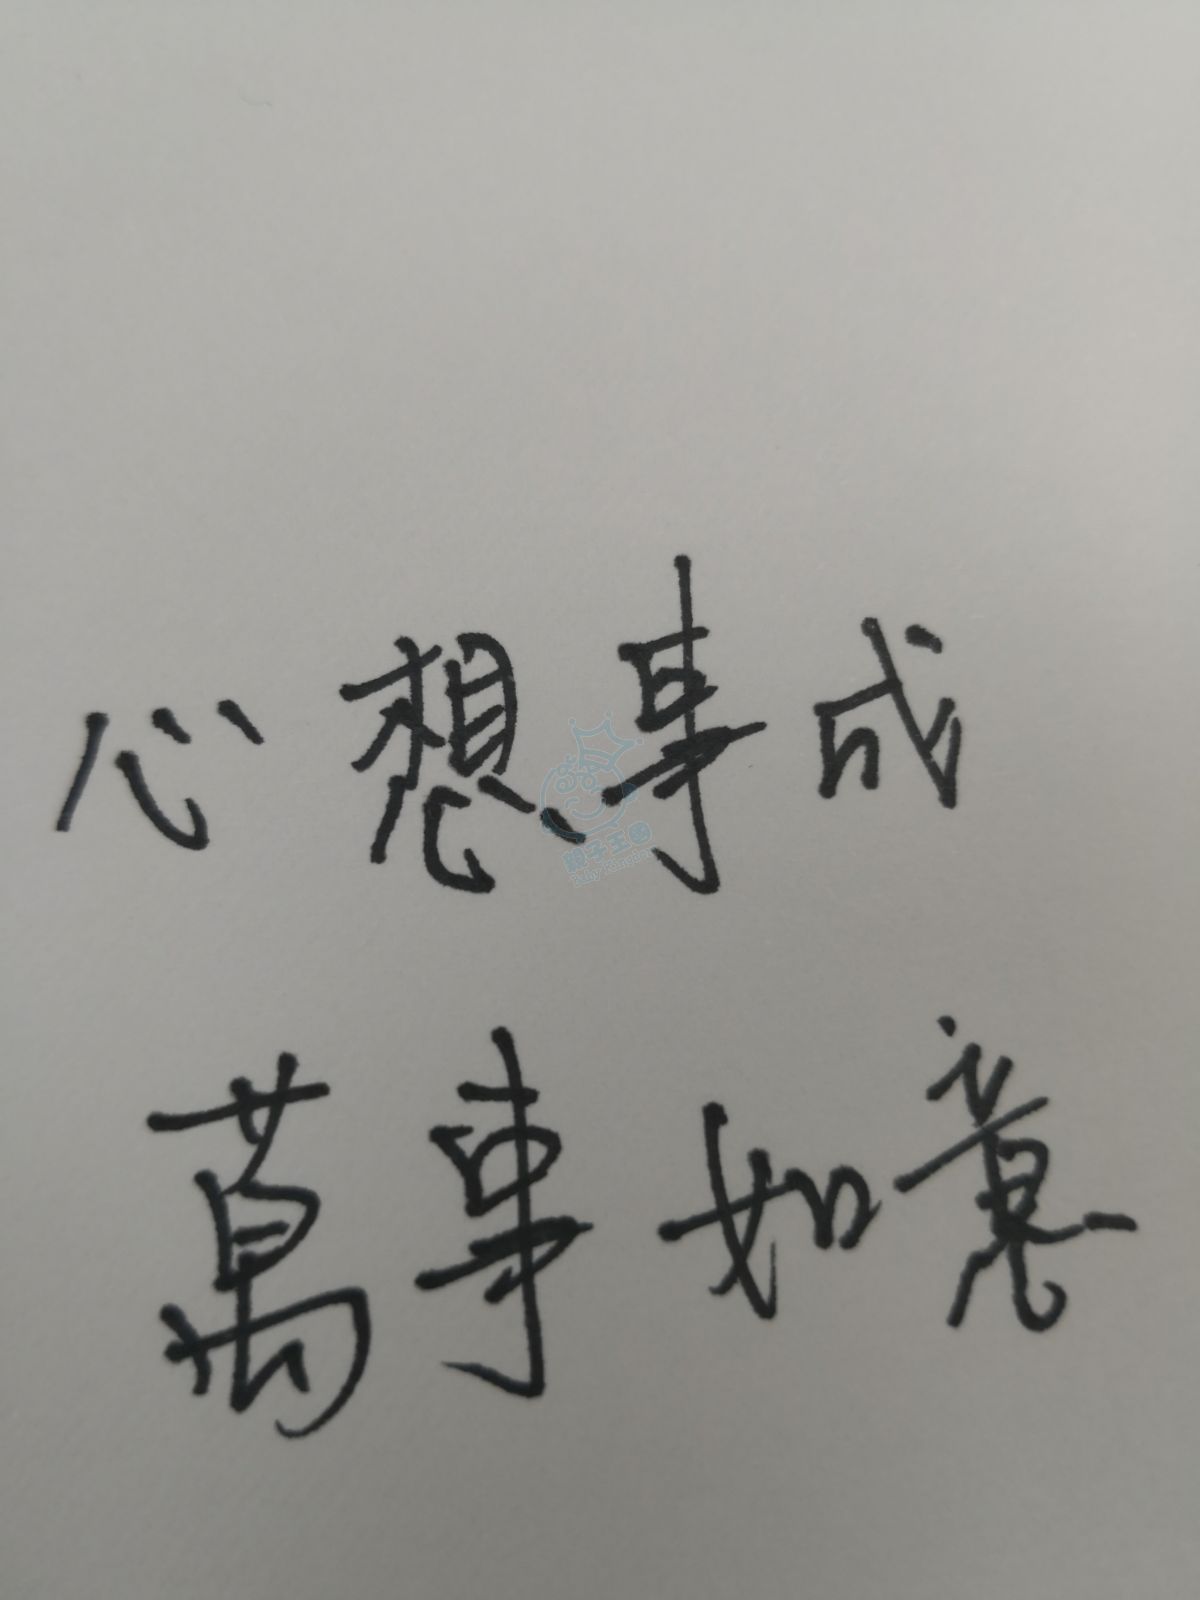 心想事成
親子王國
Baby Kingdom
萬事如意